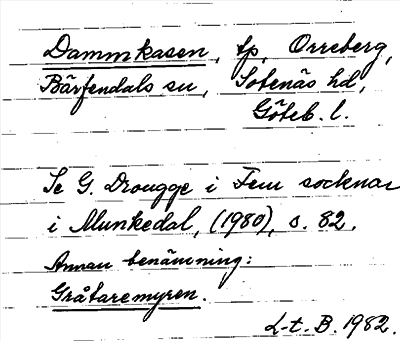 Dammkasen, tp, Orreberg,
Bärfendals sn, Sotenäs hd,
Göteb. l.
Se G. Drougge i Fem socknar
i Munkedal, (1980), s. 82.
Annan benämning:
Gråtaremyren.
L-t. B. 1982.